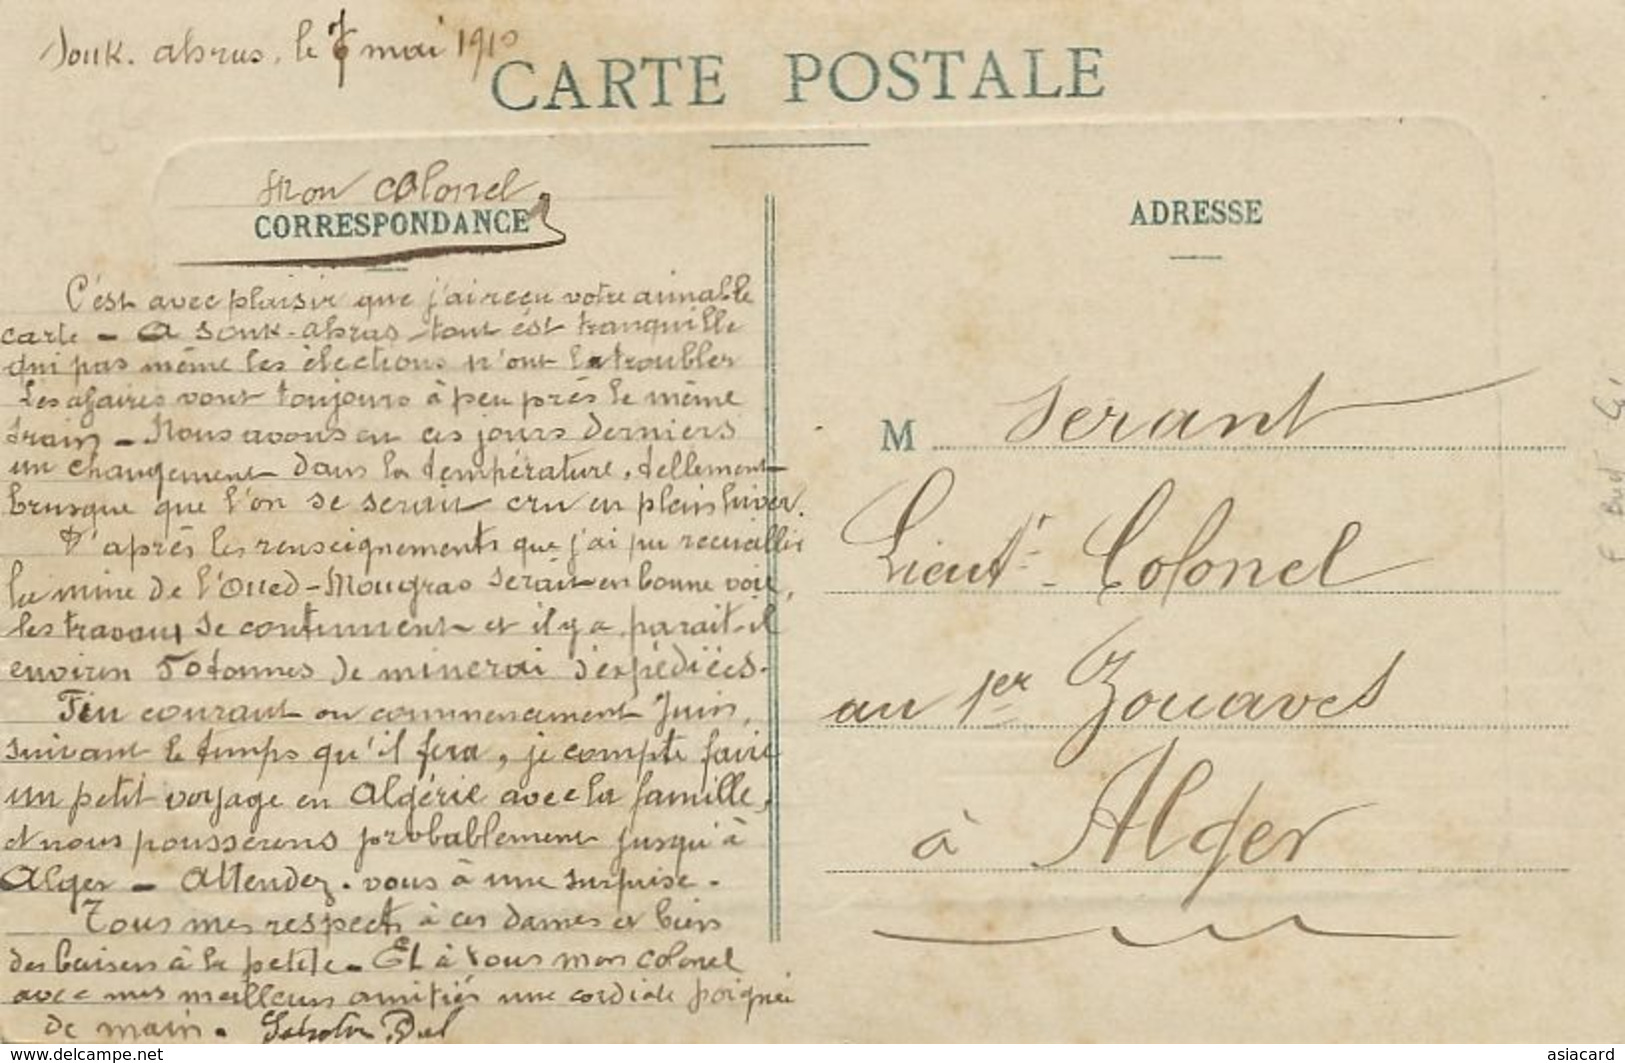 Souk-ahras, le 7 mai 1910
CARTE POSTALE
Mon Colonel
CORRESPONDANCE
C'est avec plaisir que j'ai reçu votre aimable
carte - A Souk-ahras tout est tranquille
qui pas même les élections n'ont le troubler
Les affaires vont toujours à peu près le même
train - Nous avons eu ces jours derniers
un changement dans la température, tellement
brusque que l'on se serait cru en plein hiver.
D'après les renseignements que j'ai pu recueillir
la mine de l'Oued-Mougras serait en bonne voie,
les travaux se continuent et il y a, parait-il
environ 50 tonnes de minerai d'expédiées.
Fin courant ou commencement Juin,
suivant le temps qu'il fera, je compte faire
un petit voyage en Algérie avec la famille,
et nous pousserons probablement jusqu'à
Alger - Attendez-vous à une surprise.
Tous mes respects à ces dames et bien
des baisers à la petite - Et à vous mon Colonel
avec mes meilleurs amitiés une cordiale poignée
de main.
ADRESSE
M Serant
Lieut - Colonel
au 1er Zouaves
à Alger
www.delcampe.net
asiacard